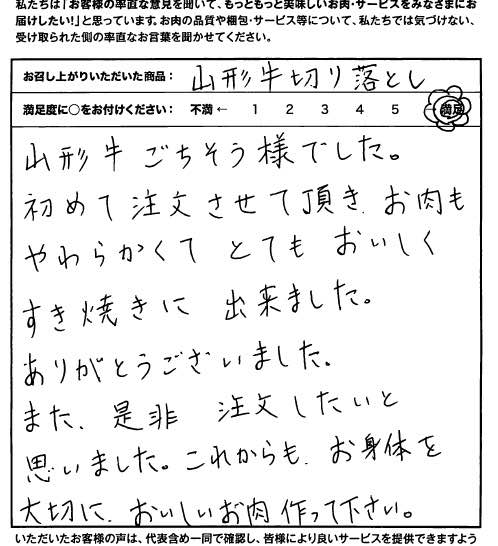 私たちは「お客様の率直な意見を聞いて、もっともっと美味しいお肉・サービスをみなさまにお
届けしたい!」と思っています。お肉の品質や梱包・サービス等について、私たちでは気づけない、
受け取られた側の率直なお言葉を聞かせてください。
お召し上がりいただいた商品： 山形牛切り落とし
満足度に○をお付けください： 不満 ← 1 2 3 4 5 → 満足
山形牛 ごちそう様でした。
初めて注文させて頂き、お肉も
やわらかくて とても おいしく
すき焼きに 出来ました。
ありがとうございました。
また、是非 注文したいと
思いました。これからも、お身体を
大切に、おいしいお肉作って下さい。
いただいたお客様の声は、代表含め一同で確認し、皆様により良いサービスを提供できますよう